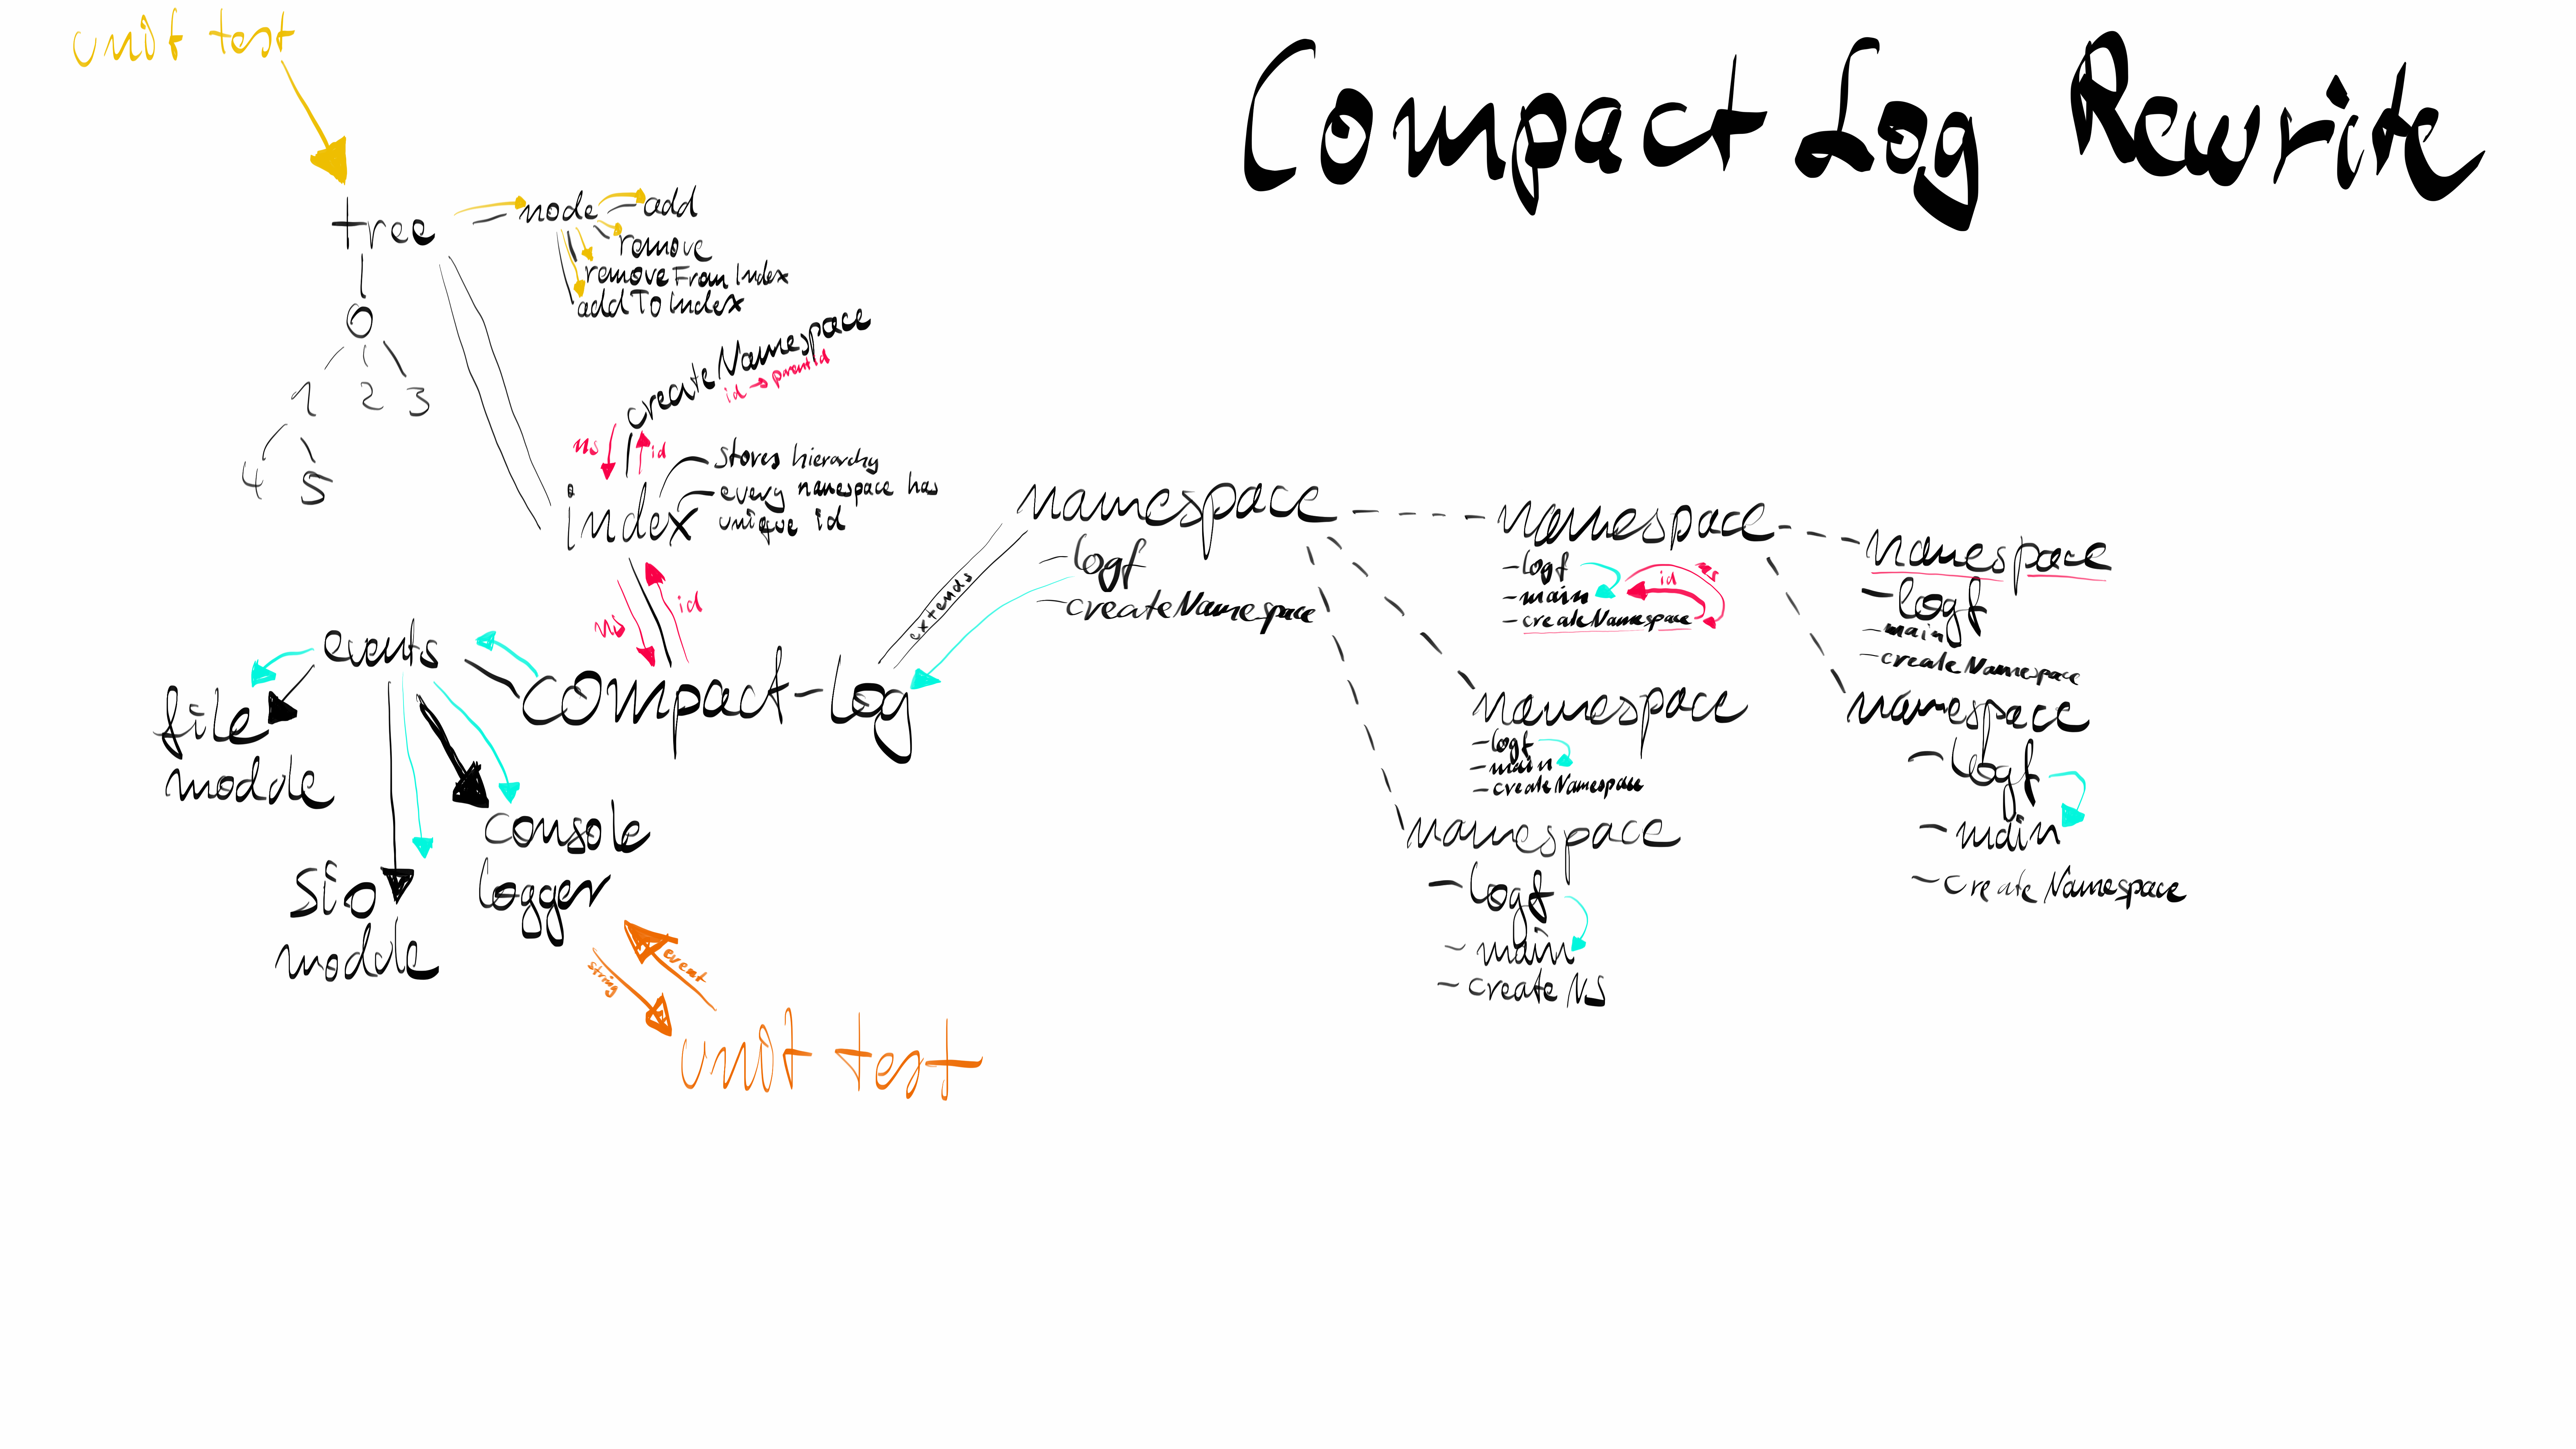 unit test
Compact Log Rewrite
tree
node
add
remove
removeFromIndex
addToIndex
0
1 2 3
4 5
createNamespace
id → parentId
ns
id
stores hierarchy
every namespace has
unique id
index
ns
id
events
compact-log
extends
file
module
sio
module
console
logger
string
event
unit test
namespace
-logf
-createNamespace
namespace
-logf
-main
-createNamespace
id
ns
namespace
-logf
-main
-createNamespace
namespace
-logf
-main
-createNamespace
namespace
-logf
-main
-createNamespace
namespace
-logf
-main
-createNS